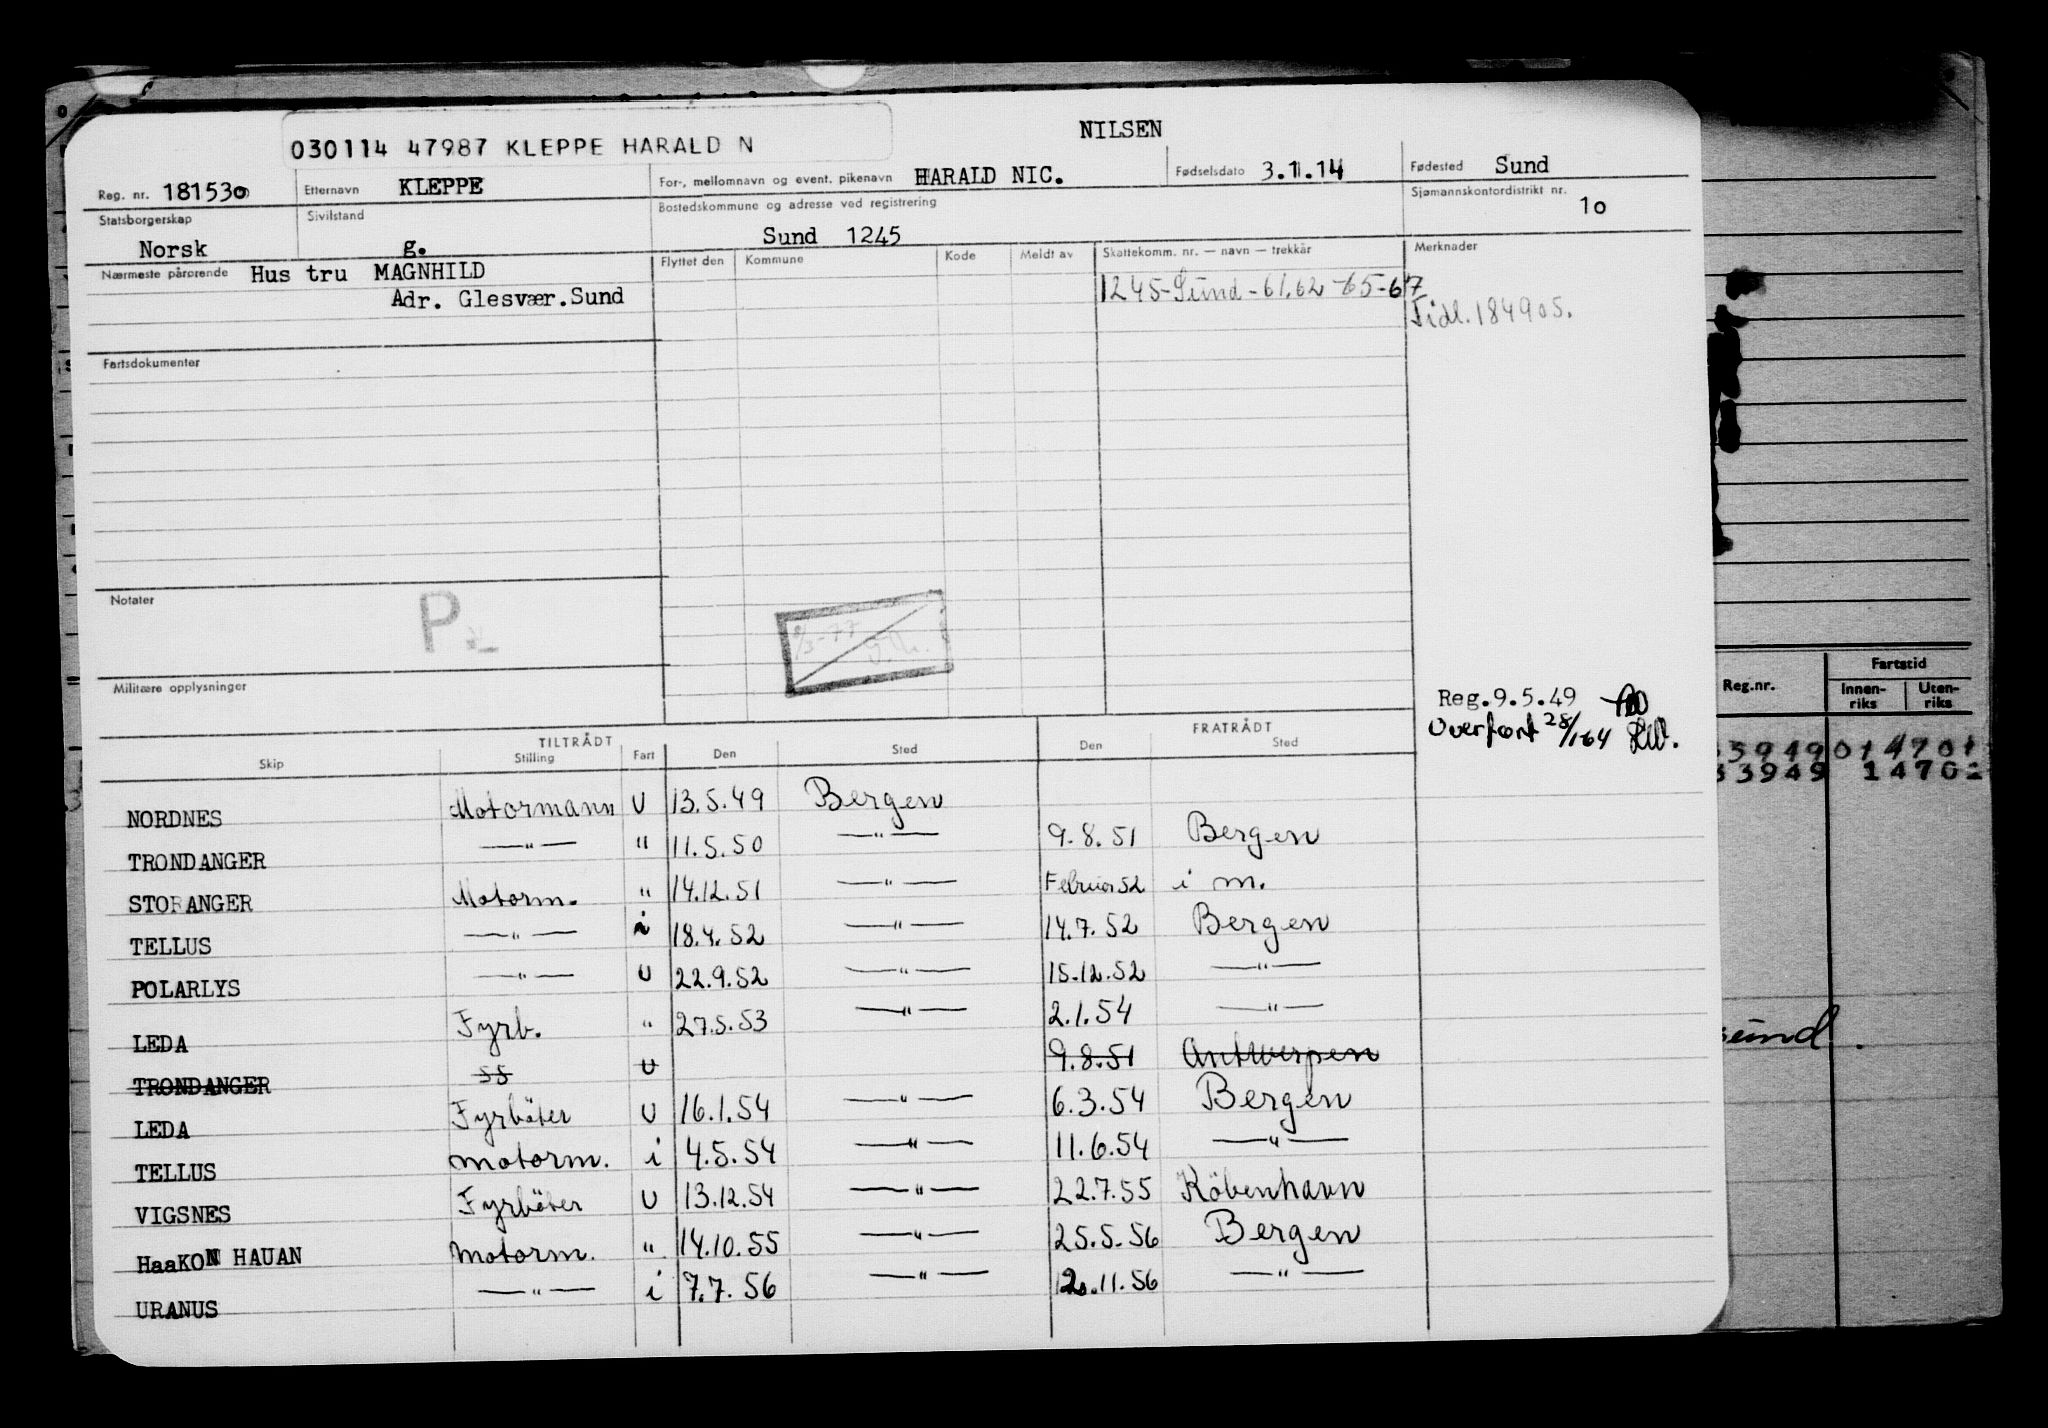 030114 47987 KLEPPE HARALD N
NILSEN
Reg. nr. 181530 Etternavn KLEPPE For-, mellomnavn og event. pikenavn HARALD NIC. Fødselsdato 3.1.14 Fødested Sund
Statsborgerskap Norsk Sivilstand g. Bostedskommune og adresse ved registrering Sund 1245 Sjømannskontordistrikt nr. 10
Nærmeste pårørende Hus tru MAGNHILD Flyttet den Kommune Kode Meldt av Skattekomm. nr. — navn — trekkår Merknader
Adr. Glesvær.Sund 1245-Sund-61.62-65-67
Tidl. 184905.
Fartsdokumenter
Notater
P
9/3-77
Militære opplysninger
Reg.9.5.49
Overført 28/1 64
TILTRÅDT FRATRÅDT
Skip Stilling Fart Den Sted Den Sted
NORDNES Motormann U 13.5.49 Bergen
TRONDANGER —"— " 11.5.50 —"— 9.8.51 Bergen
STORANGER Motorm. " 14.12.51 —"— Februar 52 i m.
TELLUS —"— i 18.4.52 —"— 14.7.52 Bergen
POLARLYS —"— U 22.9.52 —"— 15.12.52 —"—
LEDA Fyrb. " 27.5.53 —"— 2.1.54 —"—
TRONDANGER SS U 9.8.51 Antwerpen
LEDA Fyrbøter U 16.1.54 —"— 6.3.54 Bergen
TELLUS Motorm. i 4.5.54 —"— 11.6.54 —"—
VIGSNES Fyrbøter U 13.12.54 —"— 22.7.55 København
HaaKON HAUAN Motorm. " 14.10.55 —"— 25.5.56 Bergen
URANUS —"— i 7.7.56 —"— 20.11.56 —"—
Reg.nr. Fartstid
Innen-riks Uten-riks
33949 014701
33949 14702
sund.